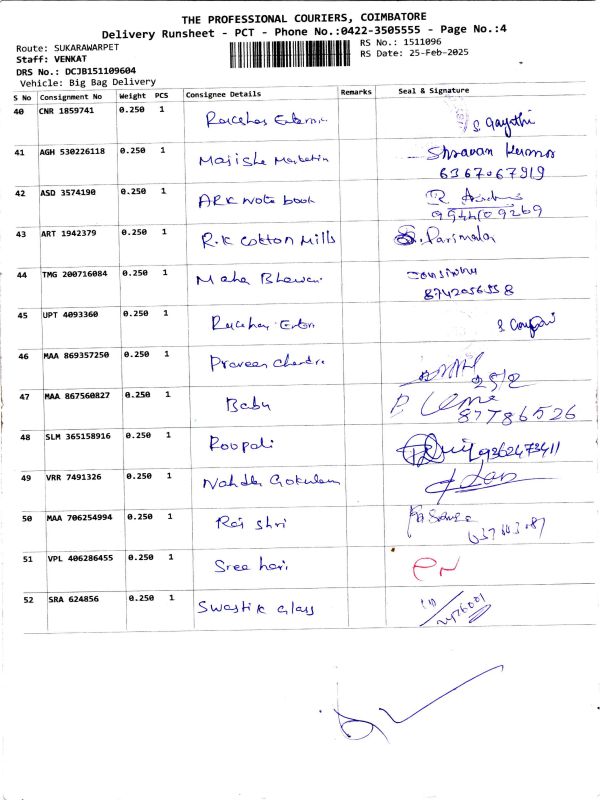 THE PROFESSIONAL COURIERS, COIMBATORE
Delivery Runsheet - PCT - Phone No.:0422-3505555 - Page No.:4
Route: SUKARAWARPET
RS No.: 1511096
Staff: VENKAT
RS Date: 25-Feb-2025
DRS No.: DCJB151109604
Vehicle: Big Bag Delivery
S No Consignment No Weight PCS Consignee Details Remarks Seal & Signature
40 CNR 1859741 0.250 1 S. Gayathi
41 AGH 530226118 0.250 1 Majisha Marketin Shravan Kumar
6367067919
42 ASD 3574190 0.250 1 ARK note book
9944109269
43 ART 1942379 0.250 1 R.K Cotton Mills S. Parimala
44 TMG 200716084 0.250 1 Maha Bhawani
8742056558
45 UPT 4093360 0.250 1
46 MAA 869357250 0.250 1 Praveen Chandra
25/2
47 MAA 867560827 0.250 1 Babu
87786526
48 SLM 365158916 0.250 1 Roopali 9362473411
49 VRR 7491326 0.250 1 Gokulam
50 MAA 706254994 0.250 1 Raj Shri
51 VPL 406286455 0.250 1 Sree hari
52 SRA 624856 0.250 1 Swastik Glass